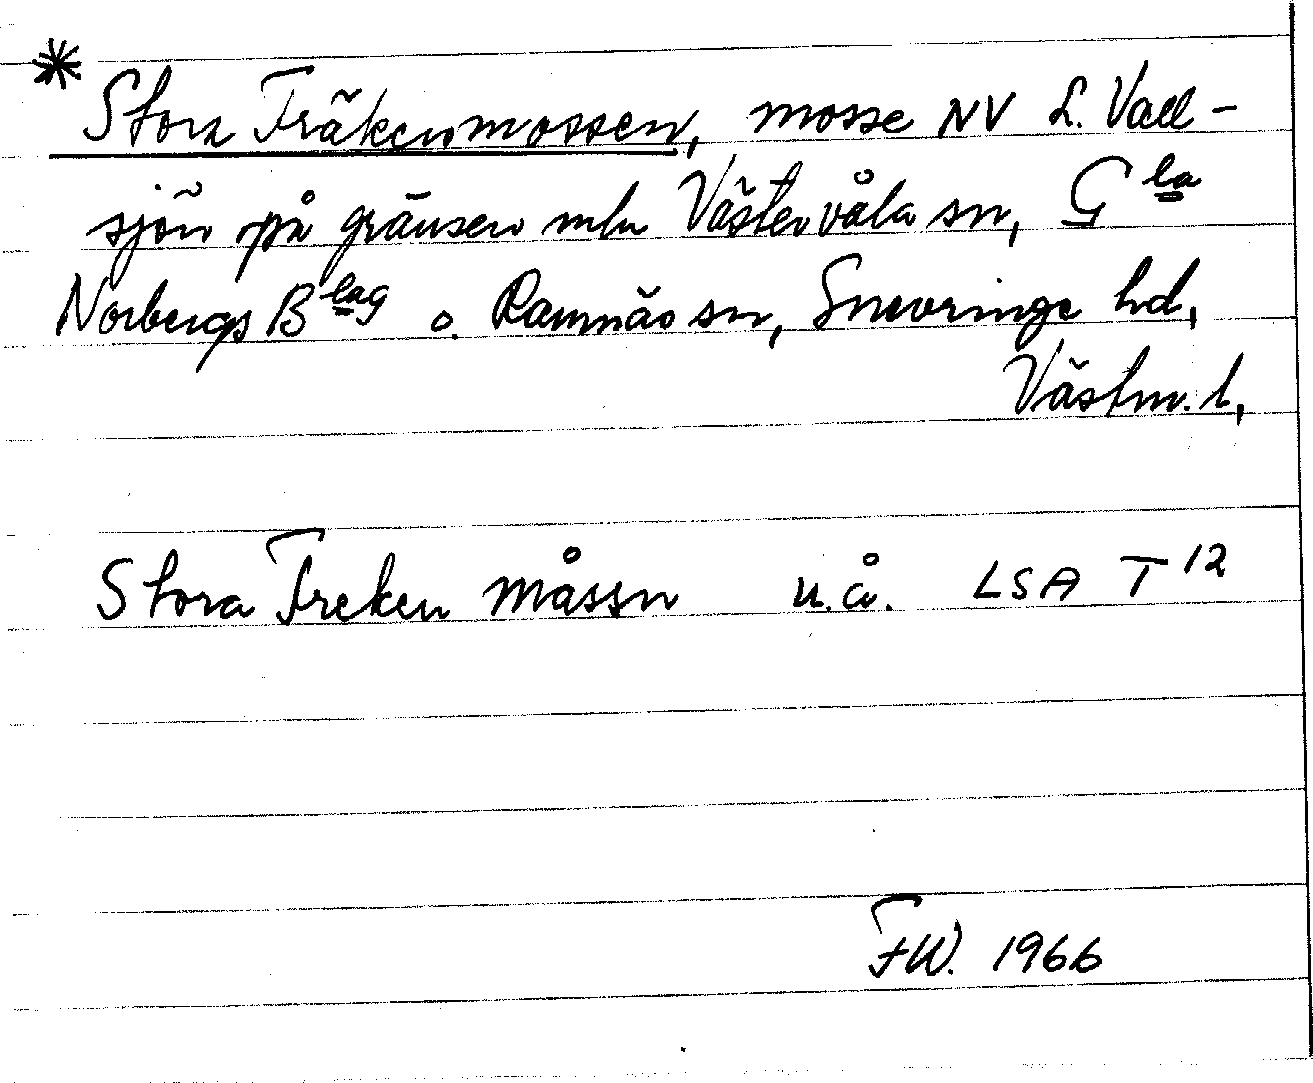 * Stora Fräkenmossen, mosse NV L. Vall-
sjön på gränsen mln Västervåla sn, G la
Norbergs B lag o. Ramnäs sn, Snevringe hd,
Västm. l,
Stora Freken måssn u.å. LSA T 12
FW. 1966